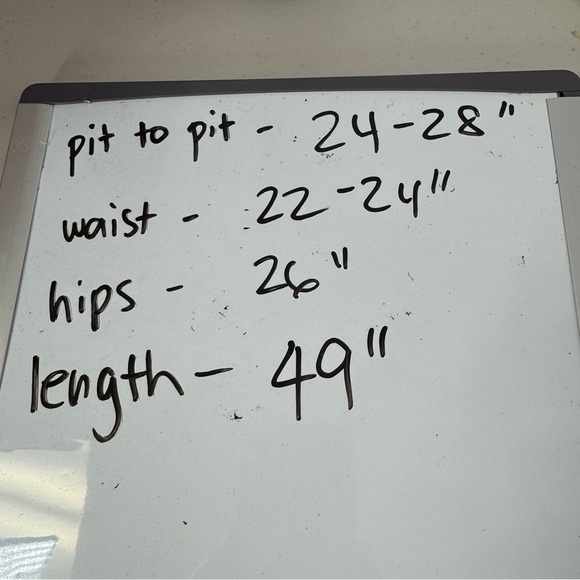 pit to pit - 24-28"
waist - 22-24"
hips - 26"
length - 49"